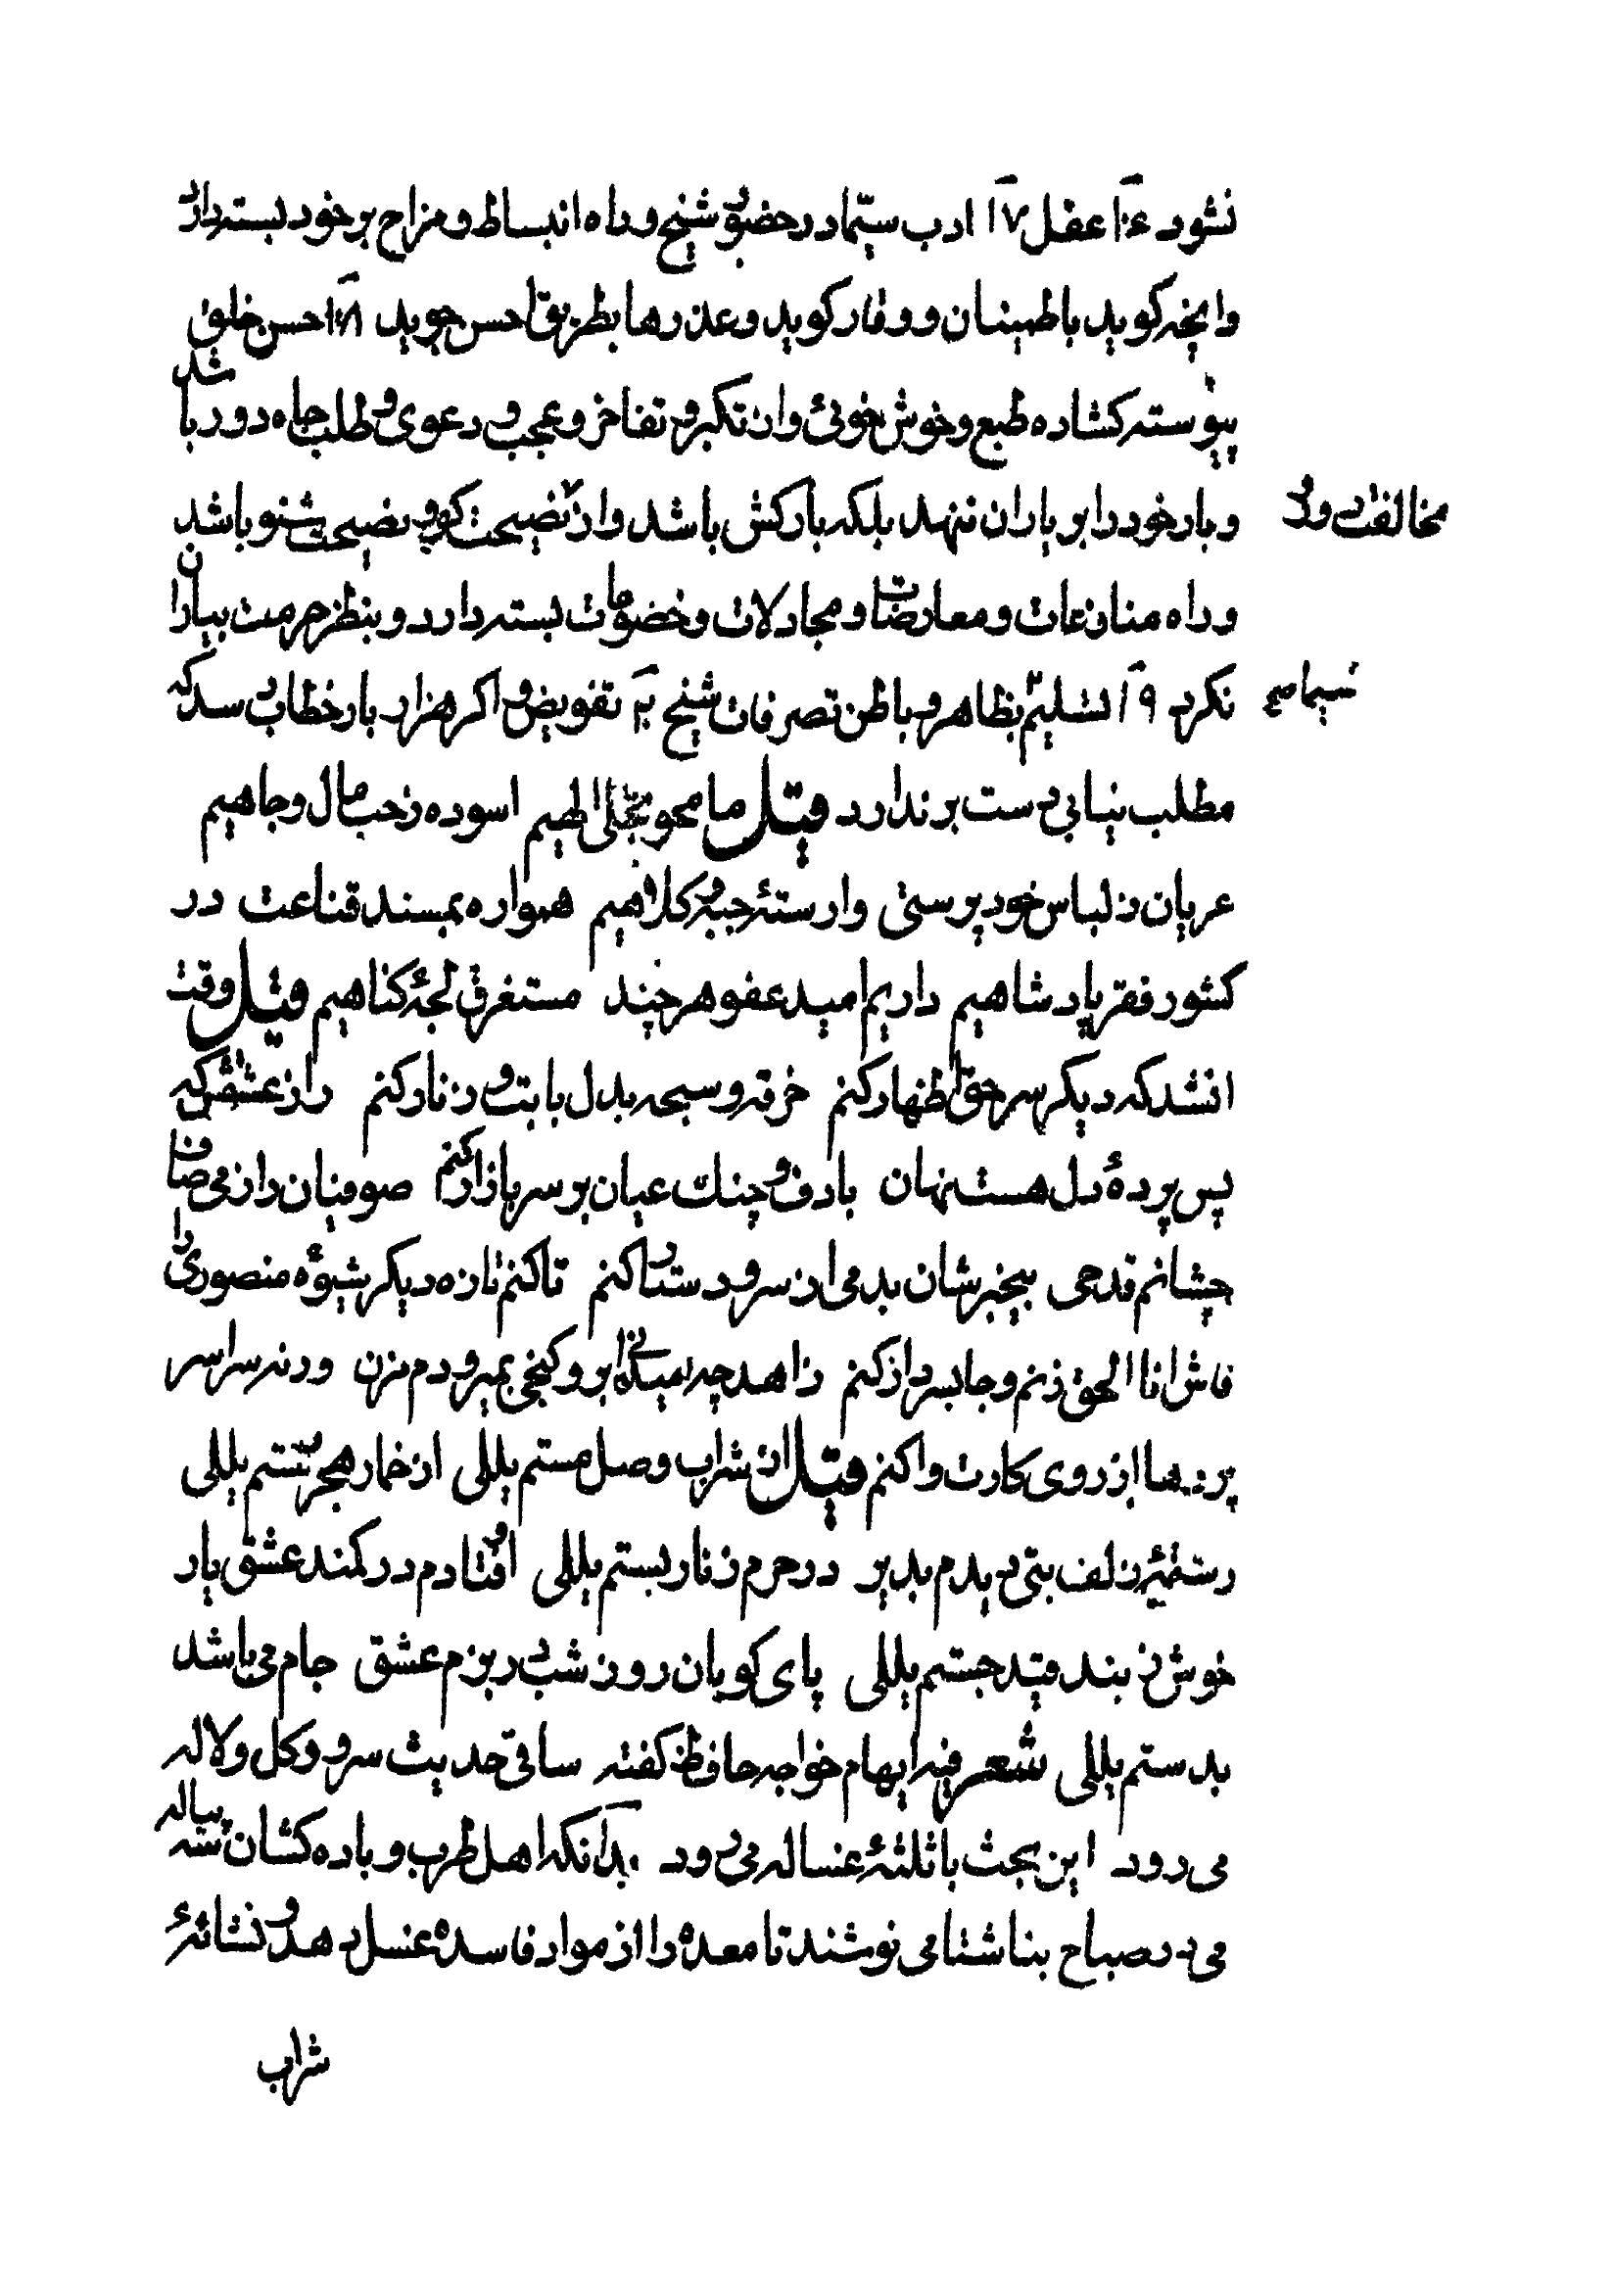 نشود ۱۶ عقل ۱۷ ادب سیّما در حضور شیخ و راه انبساط و مزاح بر خود بسته دارد
وانچه کوید باطمینان و وقار کوید و عذرها بطریق احسن جوید ۱۸ حسن خلق
پیوسته کشاده طبع و خوش خوئی وان تکبر و تفاخر و عجب و دعوی و طلب جاه دور باشد
و بار خود را بر یاران ننهد بلکه بارکش باشد وان نصیحت کو و نصیحت شنو باشد
مخالفت و رد
و راه منازعات و معارضات و مجادلات و خصومات بسته دارد و بنظر حرمت بیاران
نکرد ۱۹ تسلیم بظاهر و باطن تصرفات شیخ ۲۰ تفویض و اکر هزار بار خطاب رسد که
سیما
مطلب نیابی دست برندارد قیل ما محو تجلی الهیم اسوده ز حب مال و جاهیم
عریان ز لباس خود پرستی وارستهٔ جبه و کلاهیم همواره بمسند قناعت در
کشور فقر پادشاهیم داریم امید عفو هر چند مستغرق لجهٔ کناهیم قیل وقت
انشد که دیکر سر حق اظهار کنم خرقه و سبحه بدل بابت و زنار کنم راز عشقش که
پس پردهٔ دل هست نهان بادف و چنک عیان بر سر بازار کنم صوفیان را ز می صاف
چشانم قدحی بیخبرشان بدمی از سر و دستار کنم تا کنم تازه دیکر شیوهٔ منصوری را
فاش انا الحق زنم و جا بسر دار کنم زاهد چه میدانی برو کنجی بمیر و دم مزن ورنه سراسر
پردها از روی کارت وا کنم قیل از شراب وصل مستم یللی از خمار هجر رستم یللی
رشتهٔ زلف بتی دیدم بدیر در حرم زنار بستم یللی اوفتادم در کمند عشق یار
خوش ز بند قید جستم یللی پای کوبان روز شب در بزم عشق جام می باشد
بدستم یللی شعر فیه ایهام خواجه حافظ کفته ساقی حدیث سرو و کل و لاله
می رود این بحث با ثلثهٔ غساله می رود بدانکه اهل طرب و باده کشان سه پیاله
می در صباح بناشتا می نوشند تا معده را از مواد فاسده غسل دهد و نشائهٔ
شراب